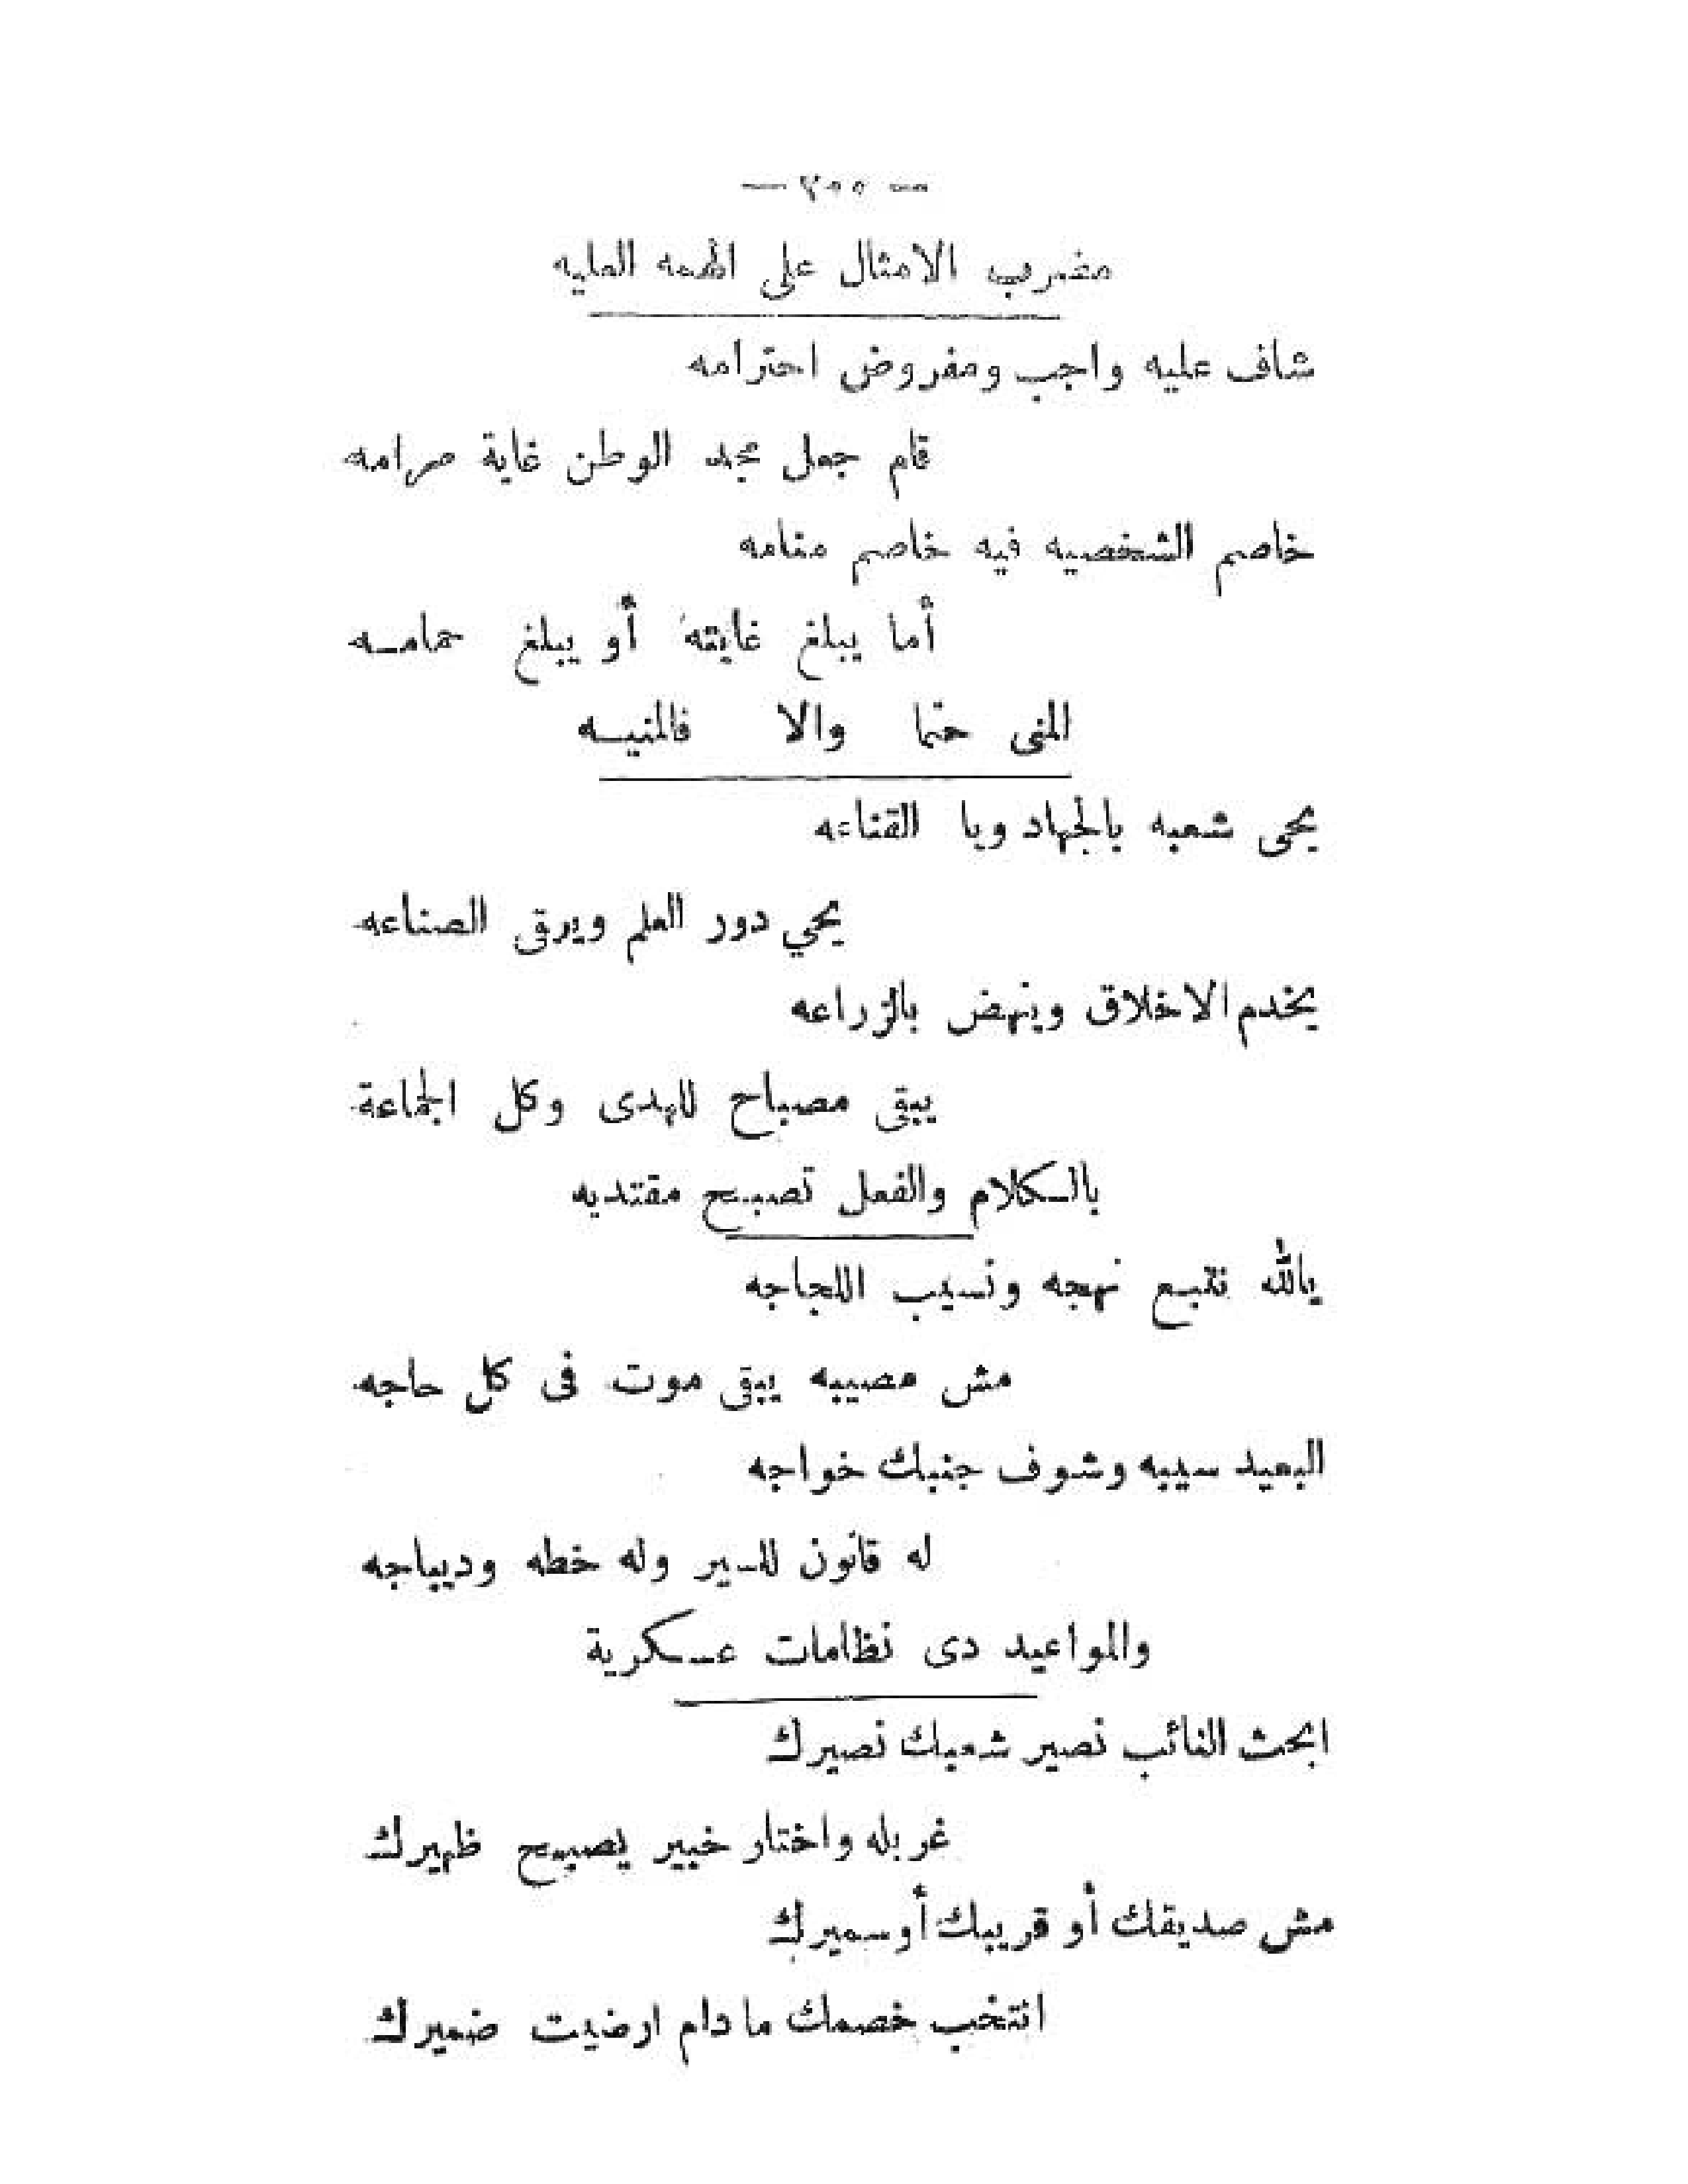 — ٢٥٥ —
مضرب الامثال على الهمه العليه
شاف عليه واجب ومفروض احترامه
قام جعل مجد الوطن غاية مرامه
خاصم الشخصيه فيه خاصم منامه
أما يبلغ غايته أو يبلغ حمامـه
المنى حتما والا فالمنيـه
يحيى شعبه بالجهاد ويا القناعه
يحيي دور العلم ويرقى الصناعه
يخدم الاخلاق وينهض بالزراعه
يبقى مصباح للهدى وكل الجماعة
بالـكلام والفعل تصبـح مقتديه
يالله نتبـع نهجه ونسيب اللجاجه
مش مصيبه يبقى موت فى كل حاجه
البعيد سيبه وشوف جنبك خواجه
له قانون للسير وله خطه وديباجه
والمواعيد دى نظامات عـسكرية
ابحث النائب نصير شعبك نصيرك
غربله واختار خبير يصبـح ظهيرك
مش صديقك أو قريبك أو سميرك
انتخب خصمك ما دام ارضيت ضميرك